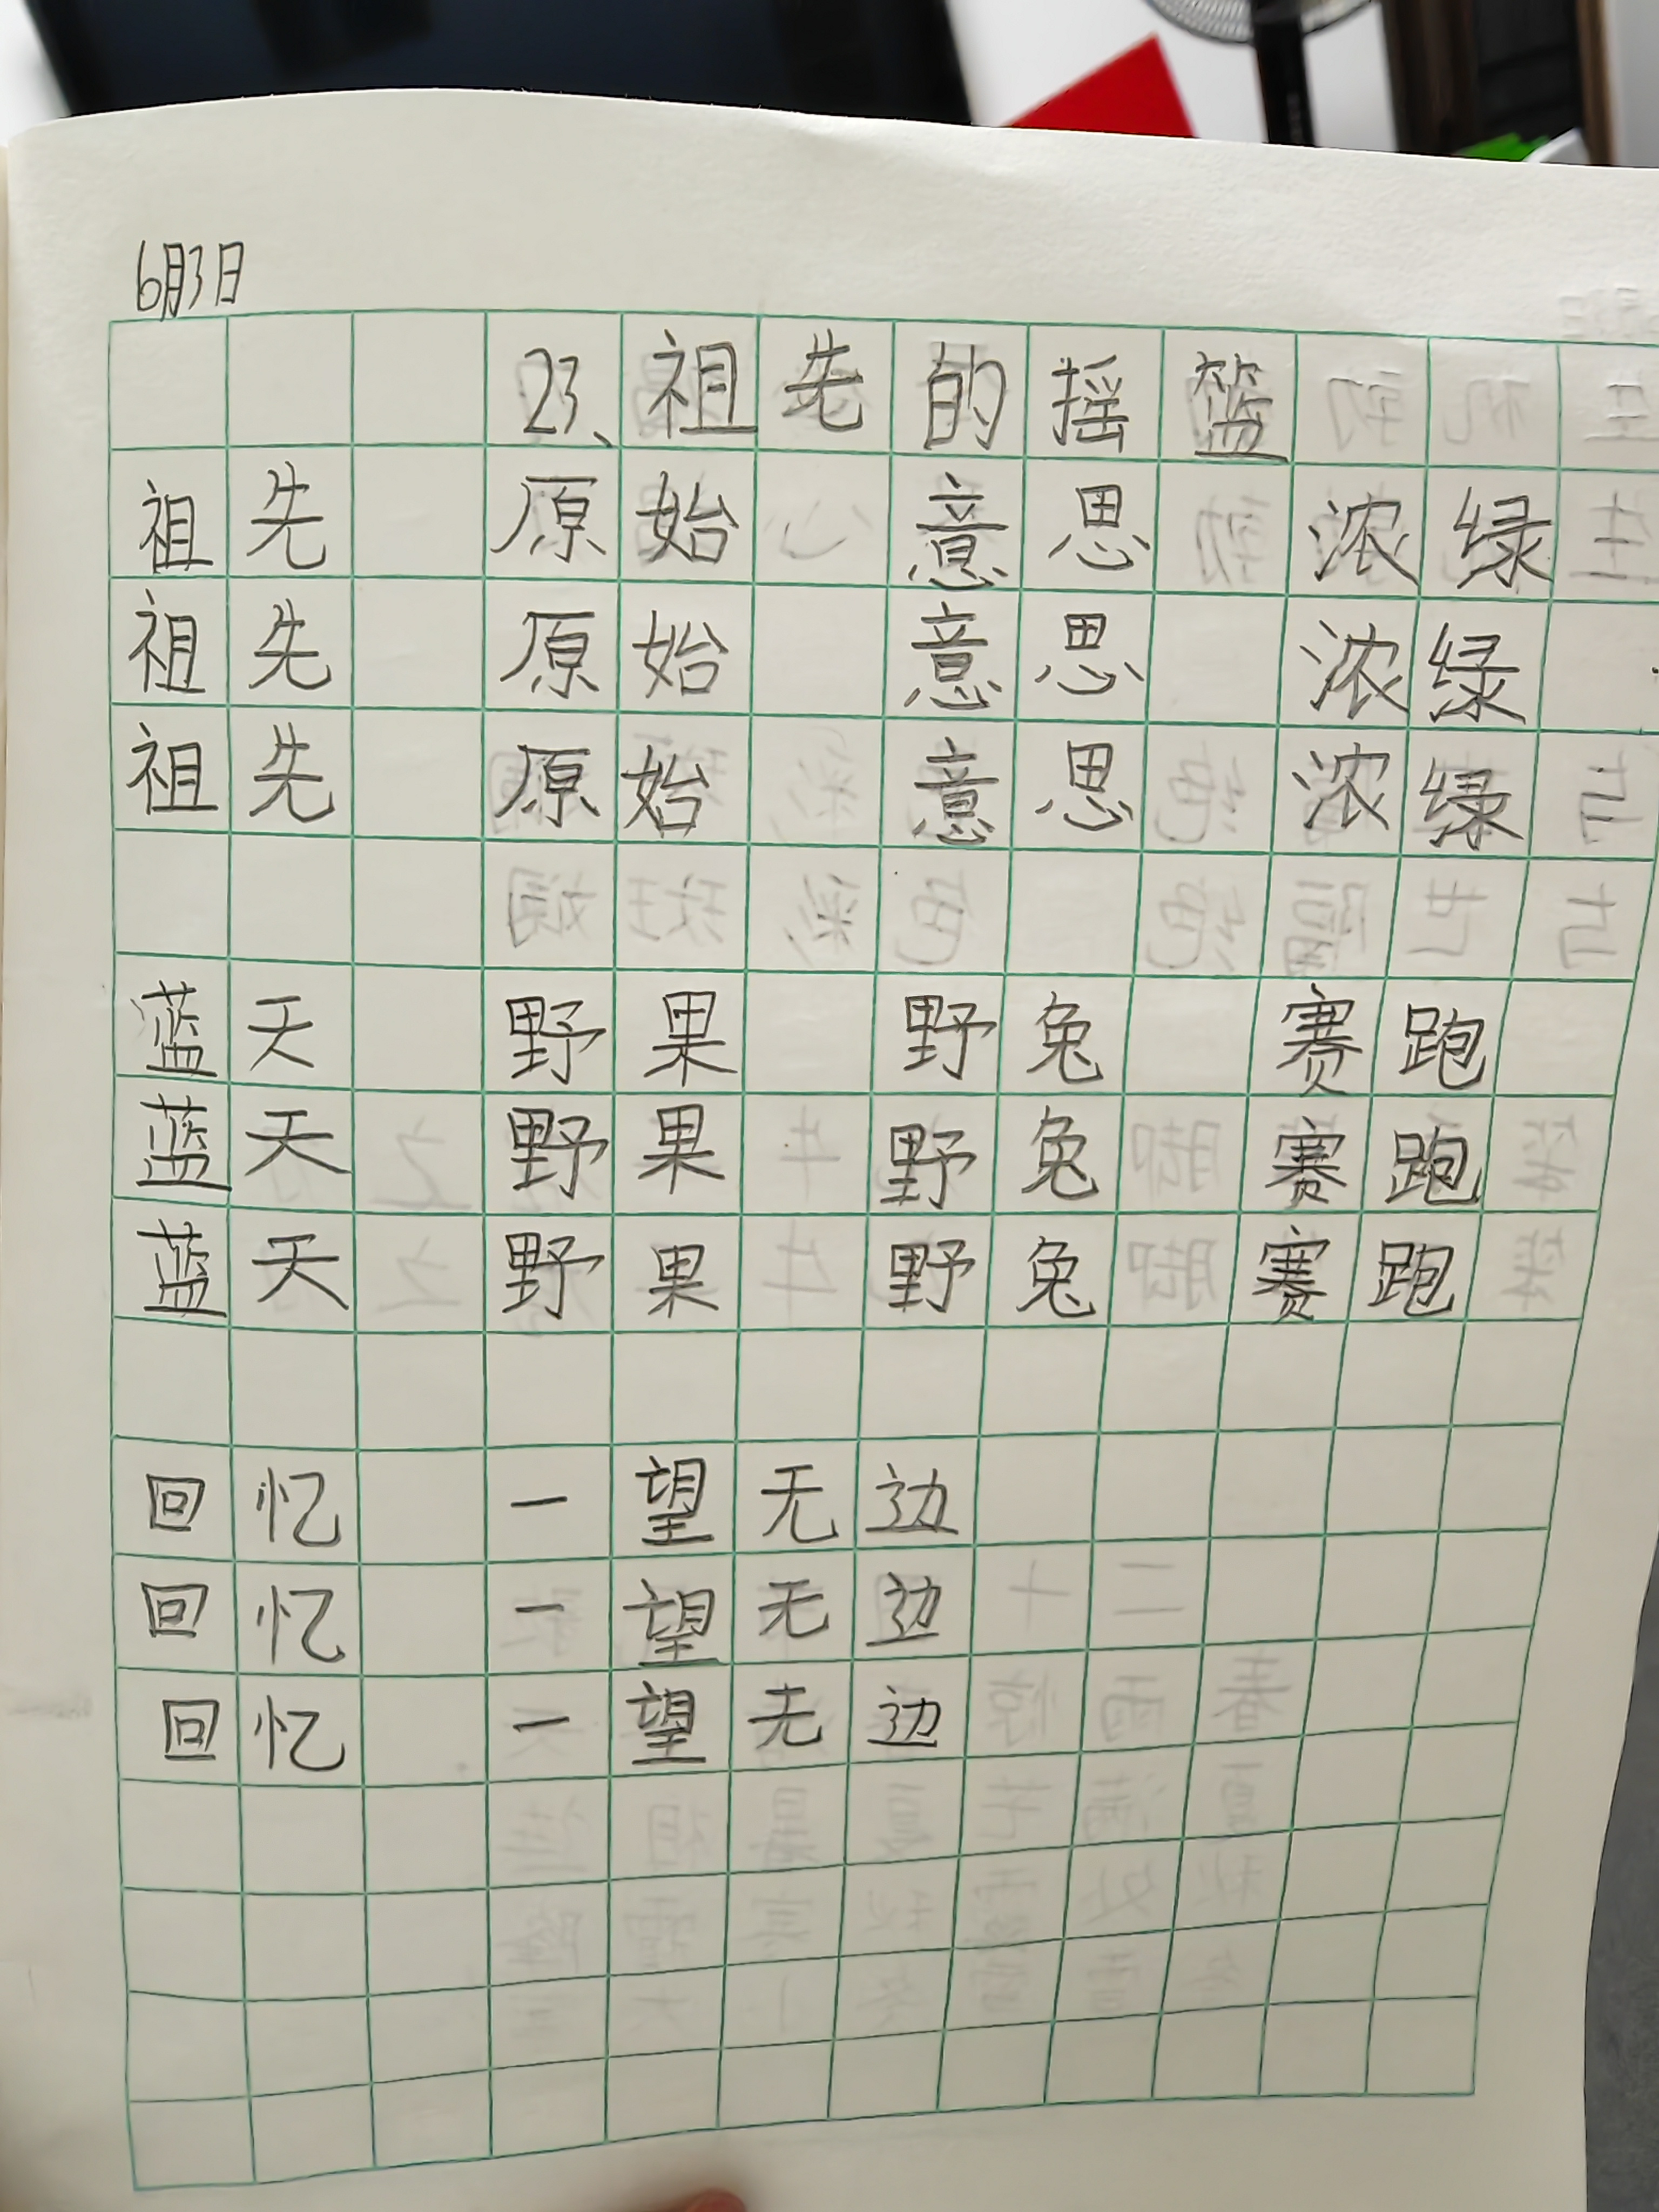 6月3日
23、祖先的摇篮
祖先 原始 意思 浓绿
祖先 原始 意思 浓绿
祖先 原始 意思 浓绿
蓝天 野果 野兔 赛跑
蓝天 野果 野兔 赛跑
蓝天 野果 野兔 赛跑
回忆 一望无边
回忆 一望无边
回忆 一望无边